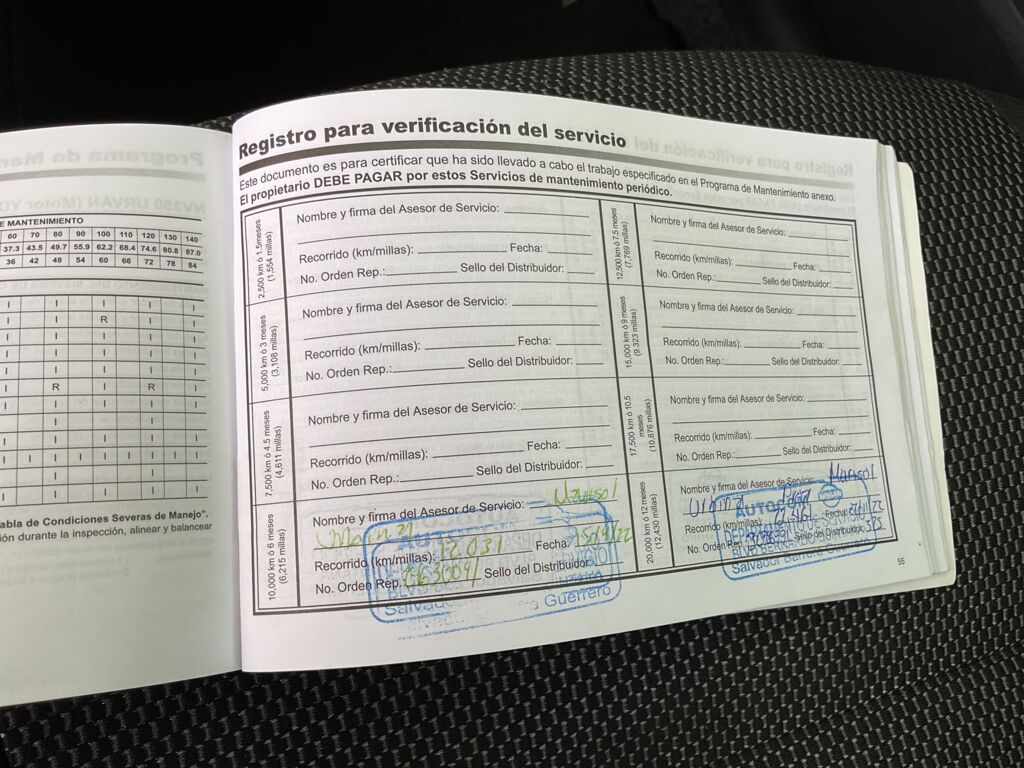 E MANTENIMIENTO
60 70 80 90 100 110 120 130 140
37.3 43.5 49.7 55.9 62.2 68.4 74.6 80.8 87.0
36 42 48 54 60 66 72 78 84
I I I I I
I I R I I
I I I I I
I I I I I
I I I I I
I R I R I
I I I I I
I I I
I I I I I
I I I I I I I I I
I I I I I
Tabla de Condiciones Severas de Manejo".
ión durante la inspección, alinear y balancear
Registro para verificación del servicio
Este documento es para certificar que ha sido llevado a cabo el trabajo especificado en el Programa de Mantenimiento anexo.
El propietario DEBE PAGAR por estos Servicios de mantenimiento periódico.
2,500 km ó 1.5meses
(1,554 millas)
Nombre y firma del Asesor de Servicio:
Recorrido (km/millas): Fecha:
No. Orden Rep.: Sello del Distribuidor:
5,000 km ó 3 meses
(3,108 millas)
Nombre y firma del Asesor de Servicio:
Recorrido (km/millas): Fecha:
No. Orden Rep.: Sello del Distribuidor:
7,500 km ó 4.5 meses
(4,611 millas)
Nombre y firma del Asesor de Servicio:
Recorrido (km/millas): Fecha:
No. Orden Rep.: Sello del Distribuidor:
10,000 km ó 6 meses
(6,215 millas)
Nombre y firma del Asesor de Servicio: Marisol
Recorrido (km/millas): 12,031 Fecha:
No. Orden Rep.: Sello del Distribuidor:
Guerrero
12,500 km ó 7.5 meses
(7,769 millas)
Nombre y firma del Asesor de Servicio:
Recorrido (km/millas): Fecha:
No. Orden Rep.: Sello del Distribuidor:
15,000 km ó 9 meses
(9,323 millas)
Nombre y firma del Asesor de Servicio:
Recorrido (km/millas): Fecha:
No. Orden Rep.: Sello del Distribuidor:
17,500 km ó 10.5
meses
(10,876 millas)
Nombre y firma del Asesor de Servicio:
Recorrido (km/millas): Fecha:
No. Orden Rep.: Sello del Distribuidor:
20,000 km ó 12 meses
(12,430 millas)
Nombre y firma del Asesor de Servicio: Marisol
Recorrido (km/millas): Fecha:
No. Orden Rep. Sello del Distribuidor:
Salvador
55